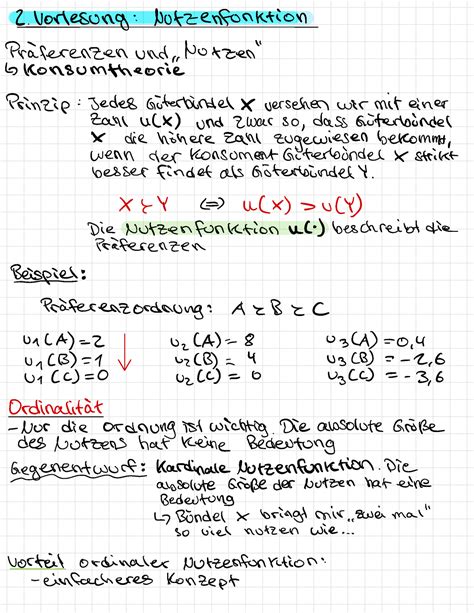 2. Vorlesung: Nutzenfunktion
Präferenzen und „Nutzen"
↳ Konsumtheorie
Prinzip: Jedes Güterbündel X versehen wir mit einer
Zahl u(X) und zwar so, dass Güterbündel
X die höhere Zahl zugewiesen bekommt,
wenn der Konsument Güterbündel X strikt
besser findet als Güterbündel Y.
X ≻ Y ⇔ u(X) > u(Y)
Die Nutzenfunktion u(·) beschreibt die
Präferenzen
Beispiel:
Präferenzordnung: A ≿ B ≿ C
u1(A) = 2 u2(A) = 8 u3(A) = 0,4
u1(B) = 1 u2(B) = 4 u3(B) = -2,6
u1(C) = 0 u2(C) = 0 u3(C) = -3,6
Ordinalität
- Nur die Ordnung ist wichtig. Die absolute Größe
des Nutzens hat keine Bedeutung
Gegenentwurf: Kardinale Nutzenfunktion. Die
absolute Größe der Nutzen hat eine
Bedeutung
↳ Bündel X bringt mir „zwei mal"
so viel nutzen wie...
Vorteil ordinaler Nutzenfunktion:
- einfacheres Konzept